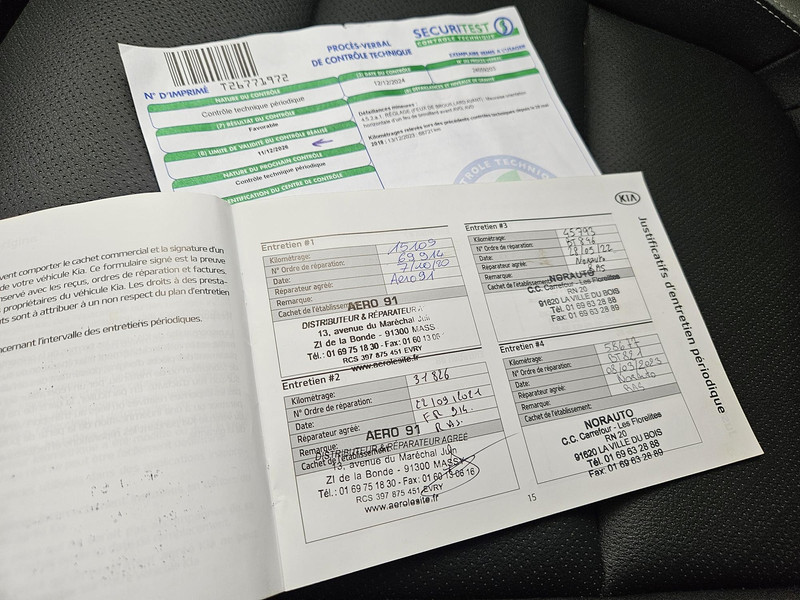 SECURITEST
CONTRÔLE TECHNIQUE
PROCÈS-VERBAL
DE CONTRÔLE TECHNIQUE
N° D'IMPRIMÉ T24771972
NATURE DU CONTRÔLE
Contrôle technique périodique
(7) RÉSULTAT DU CONTRÔLE
Favorable
(8) LIMITE DE VALIDITÉ DU CONTRÔLE RÉALISÉ
11/12/2026
NATURE DU PROCHAIN CONTRÔLE
Contrôle technique périodique
IDENTIFICATION DU CENTRE DE CONTRÔLE
(3) DATE DU CONTRÔLE
12/12/2024
Défaillances mineures :
Kilométrages relevés lors des précédents contrôles techniques depuis le 20 mai
2018 : 13/12/2023 : 68721 km
CONTRÔLE TECHNIQUE
vent comporter le cachet commercial et la signature d'un
de votre véhicule Kia. Ce formulaire signé est la preuve
nservé avec les reçus, ordres de réparation et factures.
propriétaires du véhicule Kia. Les droits à des presta-
ts sont à attribuer à un non respect du plan d'entretien
ncernant l'intervalle des entretiens périodiques.
KIA
Justificatifs d'entretien périodique
Entretien #1
Kilométrage: 15109
N° Ordre de réparation: 69914
Date: 7/10/20
Réparateur agréé: Aero91
Remarque:
Cachet de l'établissement:
AERO 91
DISTRIBUTEUR & RÉPARATEUR
13, avenue du Maréchal Juin
ZI de la Bonde - 91300 MASS
Tél.: 01 69 75 18 30 - Fax: 01 60 13 06
RCS 397 875 451 EVRY
www.aerolesite.fr
Entretien #2
Kilométrage: 31826
N° Ordre de réparation:
Date: 22/09/2021
Réparateur agréé:
Remarque:
Cachet de l'établissement:
AERO 91
DISTRIBUTEUR & RÉPARATEUR AGRÉÉ
13, avenue du Maréchal Juin
ZI de la Bonde - 91300 MASSY
Tél.: 01 69 75 18 30 - Fax: 01 60 13 06 16
RCS 397 875 451 EVRY
www.aerolesite.fr
Entretien #3
Kilométrage: 45793
N° Ordre de réparation:
Date: 28/05/22
Réparateur agréé: Norauto
Remarque: RAS
Cachet de l'établissement:
NORAUTO
C.C. Carrefour - Les Floreiites
RN 20
91620 LA VILLE DU BOIS
Tél. 01 69 63 28 88
Fax: 01 69 63 28 89
Entretien #4
Kilométrage: 58677
N° Ordre de réparation:
Date: 08/03/2023
Réparateur agréé: Norauto
Remarque: RAS
Cachet de l'établissement:
NORAUTO
C.C. Carrefour - Les Floreiites
RN 20
91620 LA VILLE DU BOIS
Tél. 01 69 63 28 88
Fax: 01 69 63 28 89
15